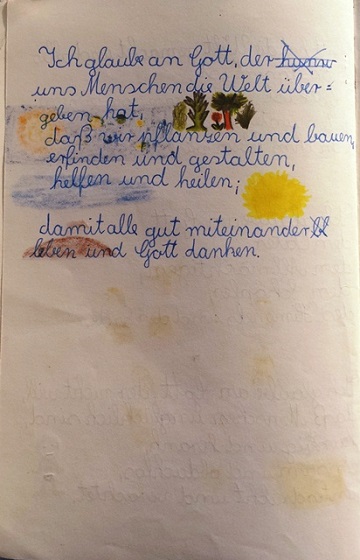 Ich glaube an Gott, der
uns Menschen die Welt über=
geben hat,
daß wir pflanzen und bauen,
erfinden und gestalten,
helfen und heilen;
damit alle gut miteinander
leben und Gott danken.